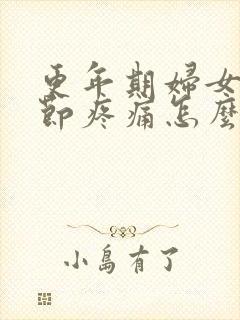 更年期婦女
節疼痛怎麼
小島有了